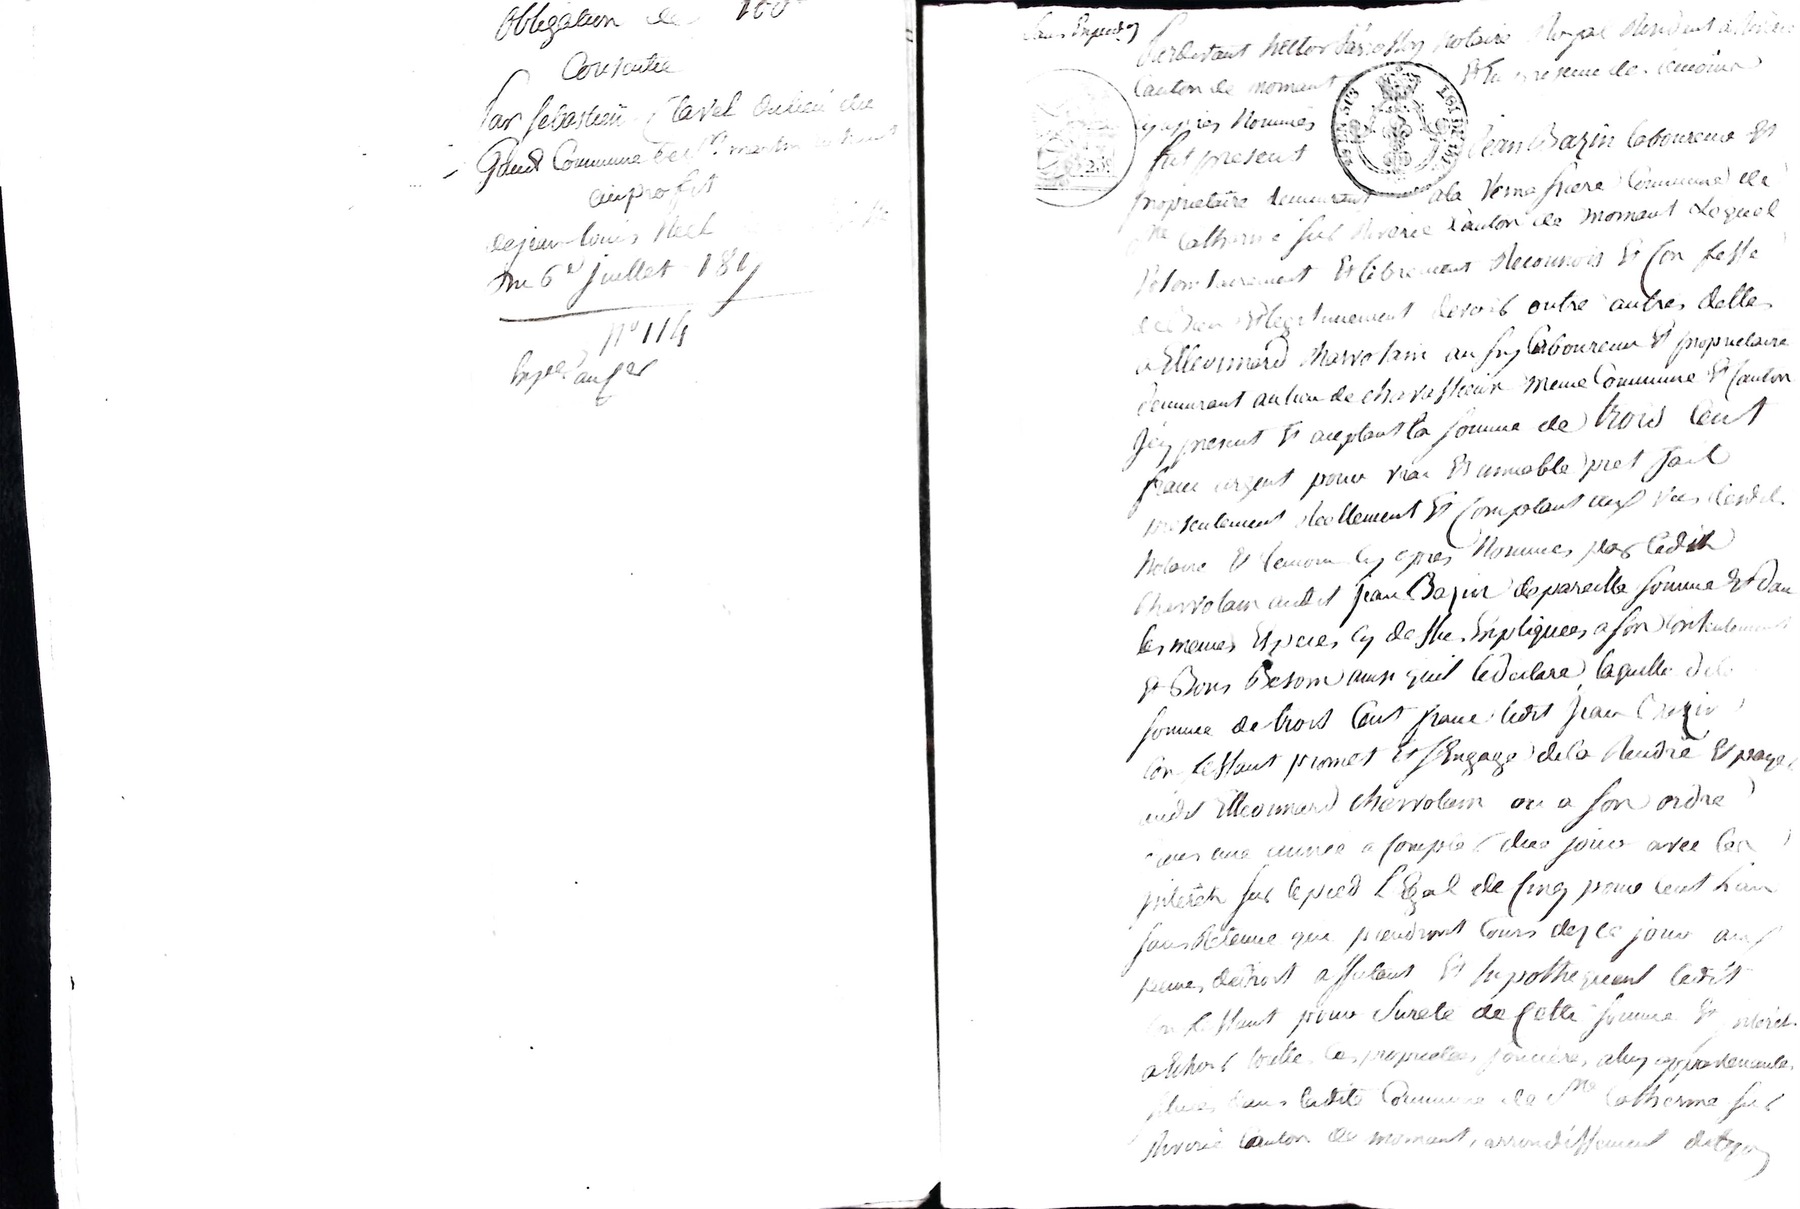 Obligation de 100
Consentie
Par Sebastien Clavel du lieu du
Gaud Commune de St. martin en haut
au profit
de jean louis
Du 6e Juillet 181
N° 114
Pardevant hector notaire Royal Residant a
Canton de mornant Et En presence des temoins
cy apres Nommés
fut present Jean Bazin laboureur Et
proprietaire demeurant a la Commune de
Ste Catherine sur Riverie Canton de mornant Lequel
Volontairement Et librement Reconnoit Et Confesse
de bien Et legitimement devoir outre autres dettes
a Eleonnard Chervolain au fuy laboureur Et proprietaire
demeurant au lieu de meme Commune Et Canton
Jcy present Et aceptant la somme de trois Cent
franc argent pour vrai Et amiable pret fait
presentement Reellement Et Comptant aux vus desdit
Notaire Et temoin Cy apres Nommés par ledit
Chervolain audit Jean Bazin de pareille somme Et dans
les memes Especes Cy dessus Expliquées a son Contentement
Et Bons Besoin ainsi quil le declare laquelle dite
somme de trois Cent franc ledit Jean Bazin
Confessant promet Et sEngage de la Rendre Et payer
audit Elleonnard Chervolain ou a son ordre
dans une année a Compter du jour avec les
interets sur le pied lEgal de Cinq pour Cent lan
sans Retenue qui prendront Cours des ce jour aux
peines de droit affectant Et hypothequant ledit
Confessant pour sureté de Cette somme Et interet
toutes les proprietés foncieres a luy appartenantes
situés dans ladite Commune de Ste Catherine sur
Riverie Canton de mornant, arrondissement de Lyon